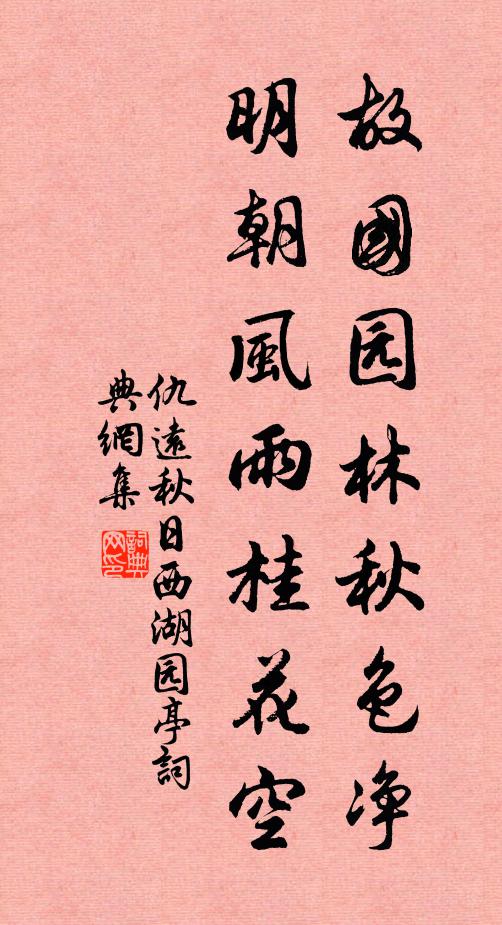 故國园林秋色净
明朝風雨桂花空
仇遠秋日西湖园亭詞
典網集
詞典
网印